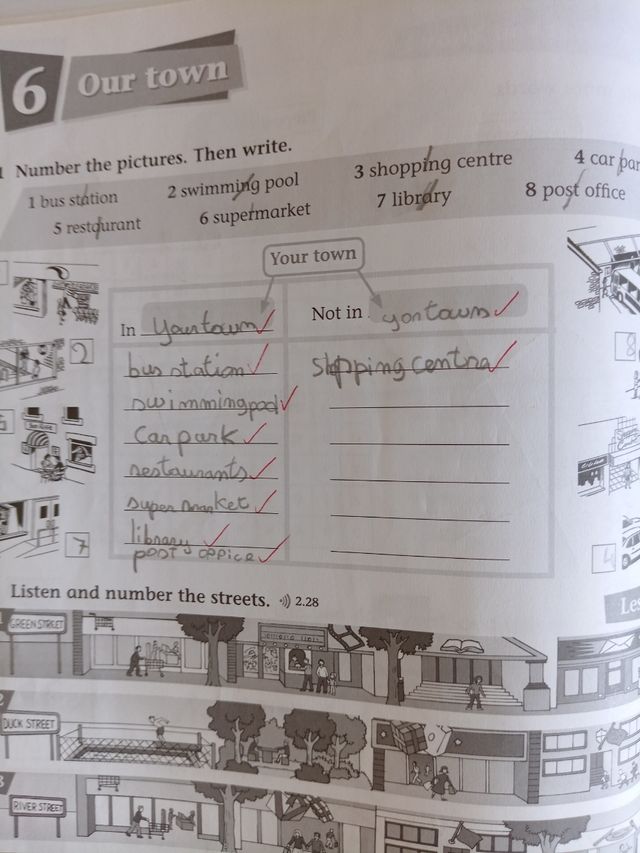 6 Our town
Number the pictures. Then write.
1 bus station 2 swimming pool 3 shopping centre 4 car par
5 restaurant 6 supermarket 7 library 8 post office
Your town
In Yourtown Not in yontown
bus station shpping centra
swimmingpool
Car park
restaurants
supermarket
library
post office
2
7
8
4
Listen and number the streets. 2.28
Les
GREEN STREET
2
DUCK STREET
3
RIVER STREET